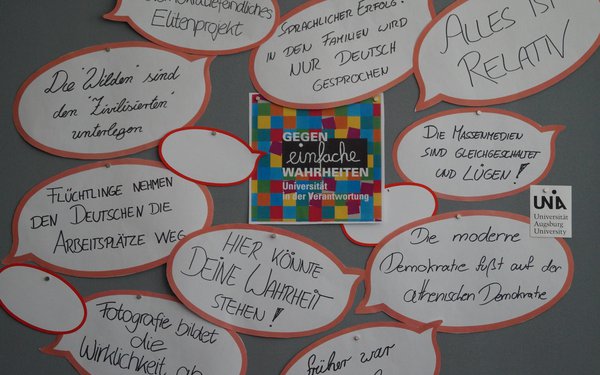 Elitenprojekt
SPRACHLICHER ERFOLG:
IN DEN FAMILIEN WIRD
NUR DEUTSCH
GESPROCHEN
ALLES IST
RELATIV
Die 'Wilden' sind
den 'Zivilisierten'
unterlegen
GEGEN
einfache
WAHRHEITEN
Universität
in der Verantwortung
DIE MASSENMEDIEN
SIND GLEICHGESCHALTET
UND LÜGEN!
UNIA
Universität
Augsburg
University
FLÜCHTLINGE NEHMEN
DEN DEUTSCHEN DIE
ARBEITSPLÄTZE WEG
HIER KÖNNTE
DEINE WAHRHEIT
STEHEN!
Die moderne
Demokratie fußt auf der
athenischen Demokratie
Fotografie bildet
die
Wirklichkeit ab
früher war